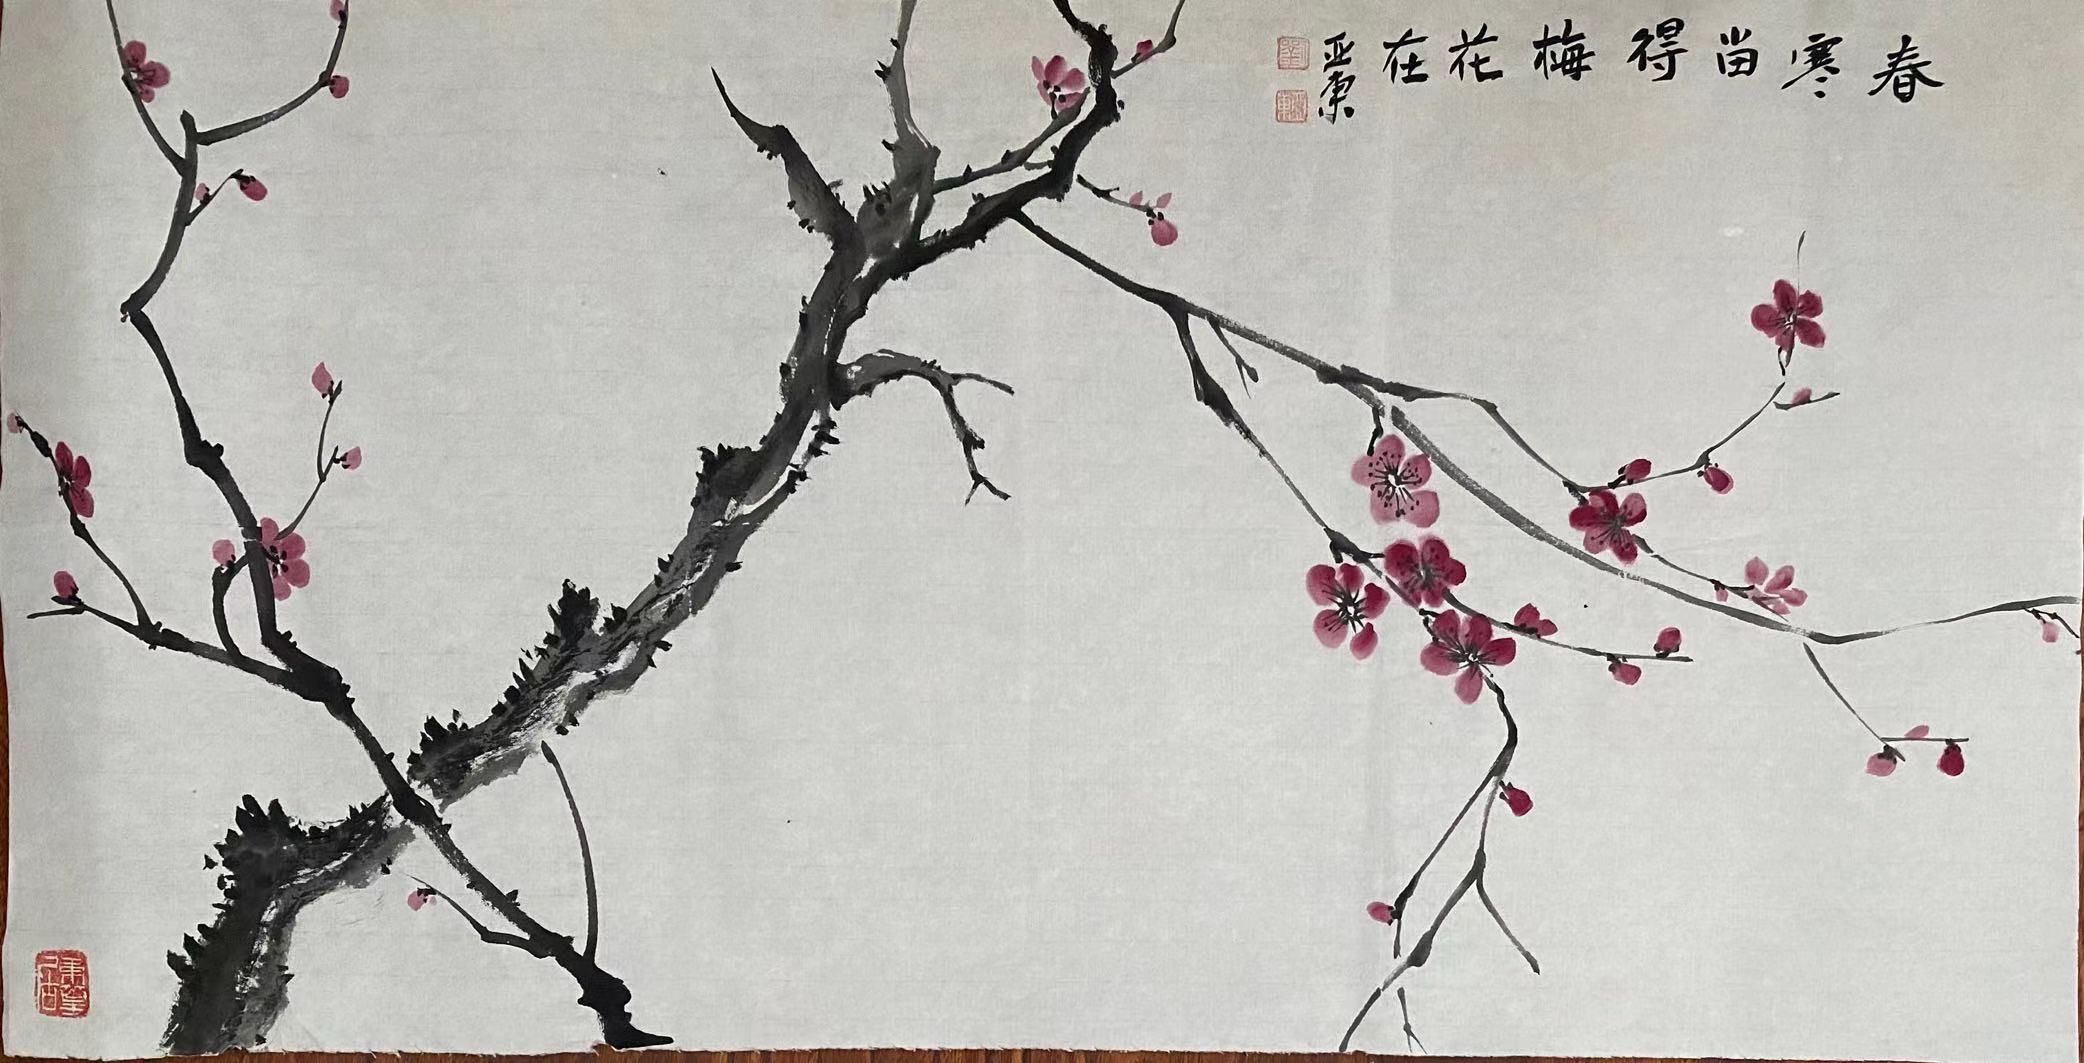 春寒当得梅花在
亚